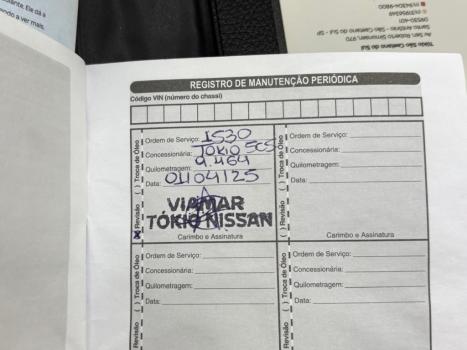 diante. Ele dá a
a ver mais.
Tókio São Caetano do Sul
Av. Sen. Roberto Simonsen, 970
Santo Antônio - São Caetano do Sul - SP
09530-401
REGISTRO DE MANUTENÇÃO PERIÓDICA
Código VIN (número do chassi)
Ordem de Serviço: 1530
Concessionária: TÓKIO SCS
Quilometragem: 9.464
Data: 01/04/25
( ) Troca de Óleo
(X) Revisão
VIAMAR
TÓKIO NISSAN
Carimbo e Assinatura
Ordem de Serviço:
Concessionária:
Quilometragem:
Data:
( ) Troca de Óleo
( ) Revisão
Carimbo e Assinatura
Ordem de Serviço:
Concessionária:
Quilometragem:
Data:
( ) Troca de Óleo
Revisão
Ordem de Serviço:
Concessionária:
Quilometragem:
Data:
( ) Troca de Óleo
Revisão